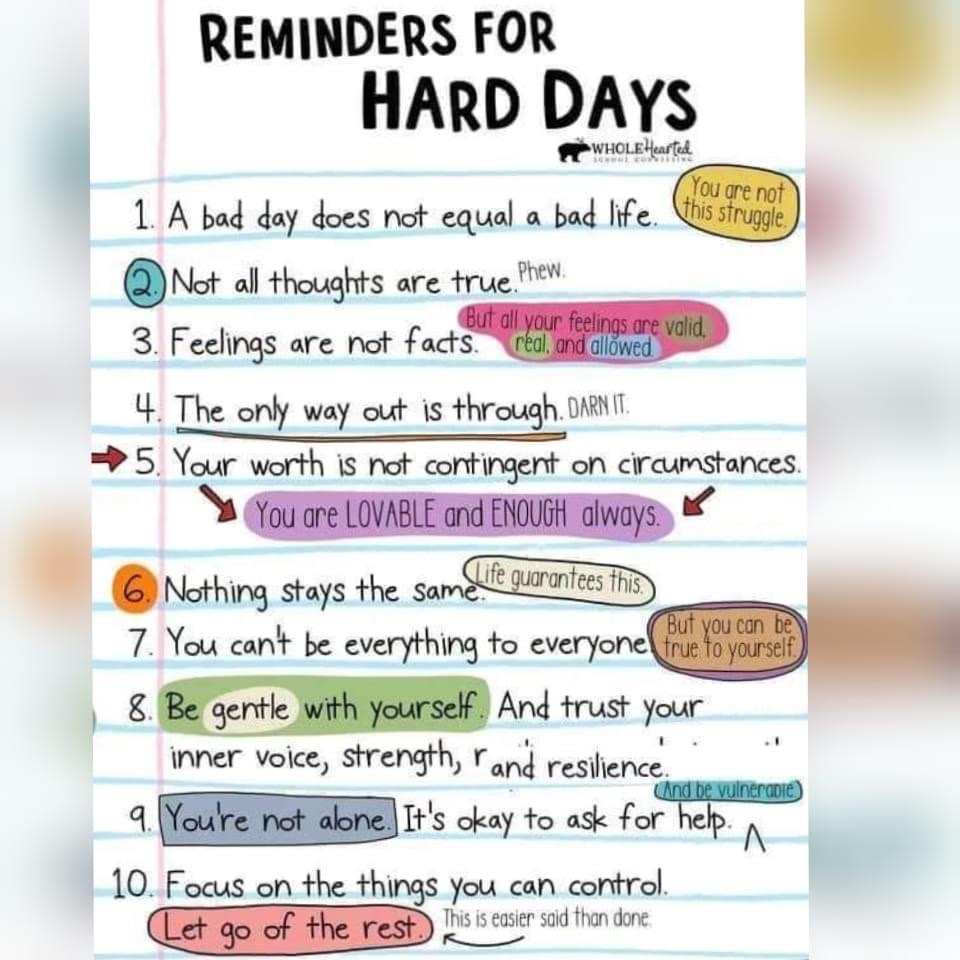 REMINDERS FOR
HARD DAYS
WHOLEHearted
SCHOOL COUNSELING
1. A bad day does not equal a bad life. You are not
this struggle.
2. Not all thoughts are true. Phew.
3. Feelings are not facts. But all your feelings are valid,
real, and allowed.
4. The only way out is through. DARN IT.
5. Your worth is not contingent on circumstances.
You are LOVABLE and ENOUGH always.
6. Nothing stays the same. Life guarantees this.
7. You can't be everything to everyone But you can be
true to yourself.
8. Be gentle with yourself. And trust your
inner voice, strength, r and resilience.
And be vulnerable
9. You're not alone. It's okay to ask for help.
10. Focus on the things you can control.
Let go of the rest. This is easier said than done.